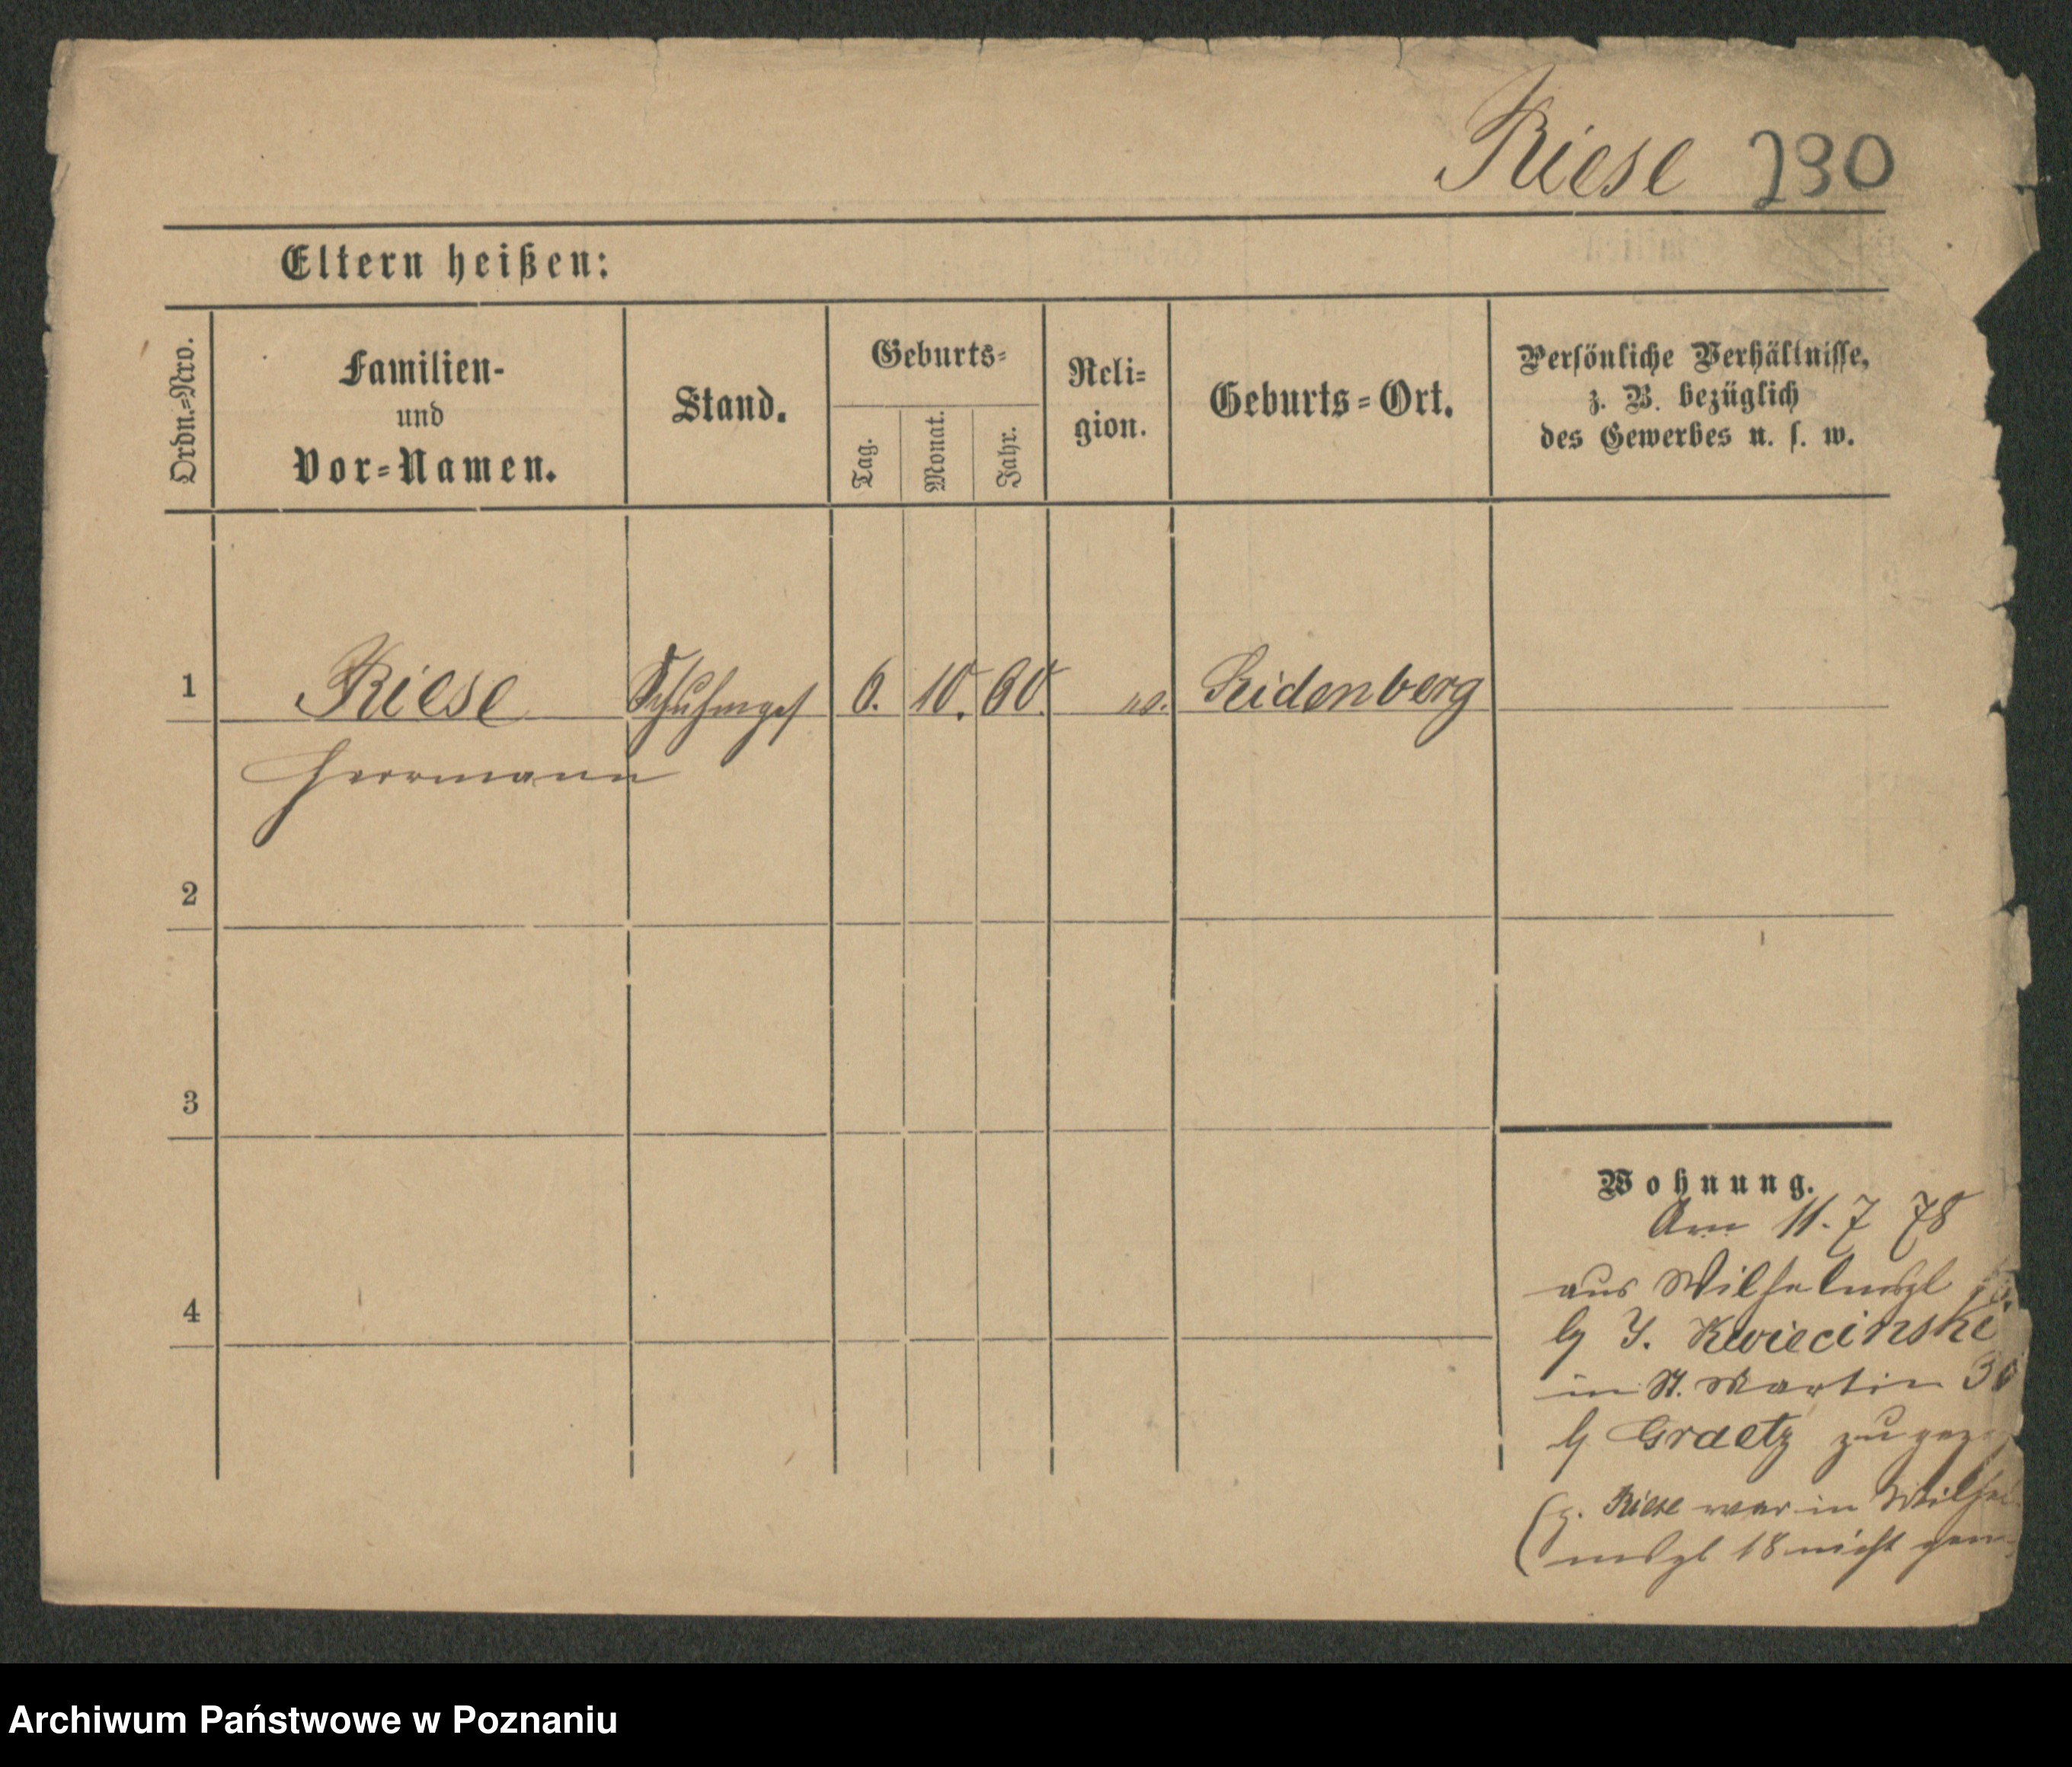 Riese 230
Eltern heißen:
Ordn.=Nro.
Familien-
und
Vor=Namen.
Stand.
Geburts=
Tag.
Monat.
Jahr.
Reli=
gion.
Geburts=Ort.
Persönliche Verhältnisse,
z. B. bezüglich
des Gewerbes u. s. w.
1 Riese 6. 10. 60. ev.
Herrmann
2
3
4
Wohnung.
Am 11. 7 78
aus Wilhelmspl
b J. Kwiecinski
in St. Martin
b Graetz
(p. Riese war in Wilhel
mspl 18 nicht gem
Archiwum Państwowe w Poznaniu